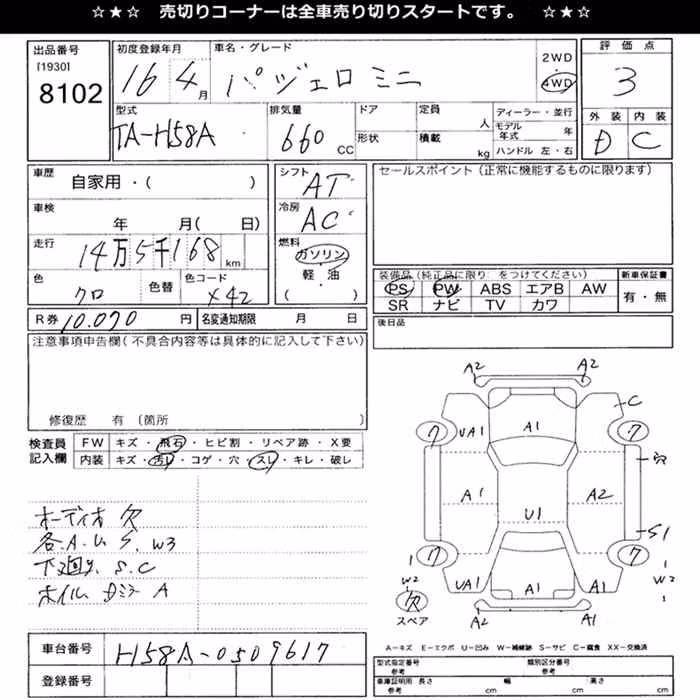 ☆★☆ 売切りコーナーは全車売り切りスタートです。 ☆★☆
出品番号 [1930] 8102
初度登録年月 16 4月
車名・グレード パジェロ ミニ
2WD
4WD
評価点 3
外装 D 内装 C
型式 TA-H58A
排気量 660 CC
ドア
形状
定員 人
積載 kg
ディーラー・並行
モデル年式 年
ハンドル 左・右
車歴 自家用・( )
車検 年 月( 日)
走行 14万5千168 km
色 クロ 色替 色コード X42
シフト AT
冷房 AC
燃料 ガソリン・軽油
( )
セールスポイント(正常に機能するものに限ります)
装備品(純正品に限り をつけてください)
PS PW ABS エアB AW
SR ナビ TV カワ
新車保証書 有・無
R券 10,070 円 名変通知期限 月 日
後日品
注意事項申告欄(不具合内容等は具体的に記入して下さい)
修復歴 有 (箇所 )
検査員記入欄
FW キズ・飛石・ヒビ割・リペア跡・X要
内装 キズ・汚レ・コゲ・穴・スレ・キレ・破レ
オーディオ 欠
各A.U S. W3
下廻り. S.C
ホイル Dミラー A
A2 A2
C
7 UA1 A1 7
穴
A1 U1 A2
S1
7 7
W2 W2
UA1 A1 A1
欠
スペア
A2 A1
A=キズ E=エクボ U=凹み W=補修跡 S=サビ C=腐食 XX=交換済
車台番号 H58A-0509617
登録番号
型式指定番号 参考 類別区分番号 参考
車庫証明用 参考 長さ cm 幅 cm 高さ cm